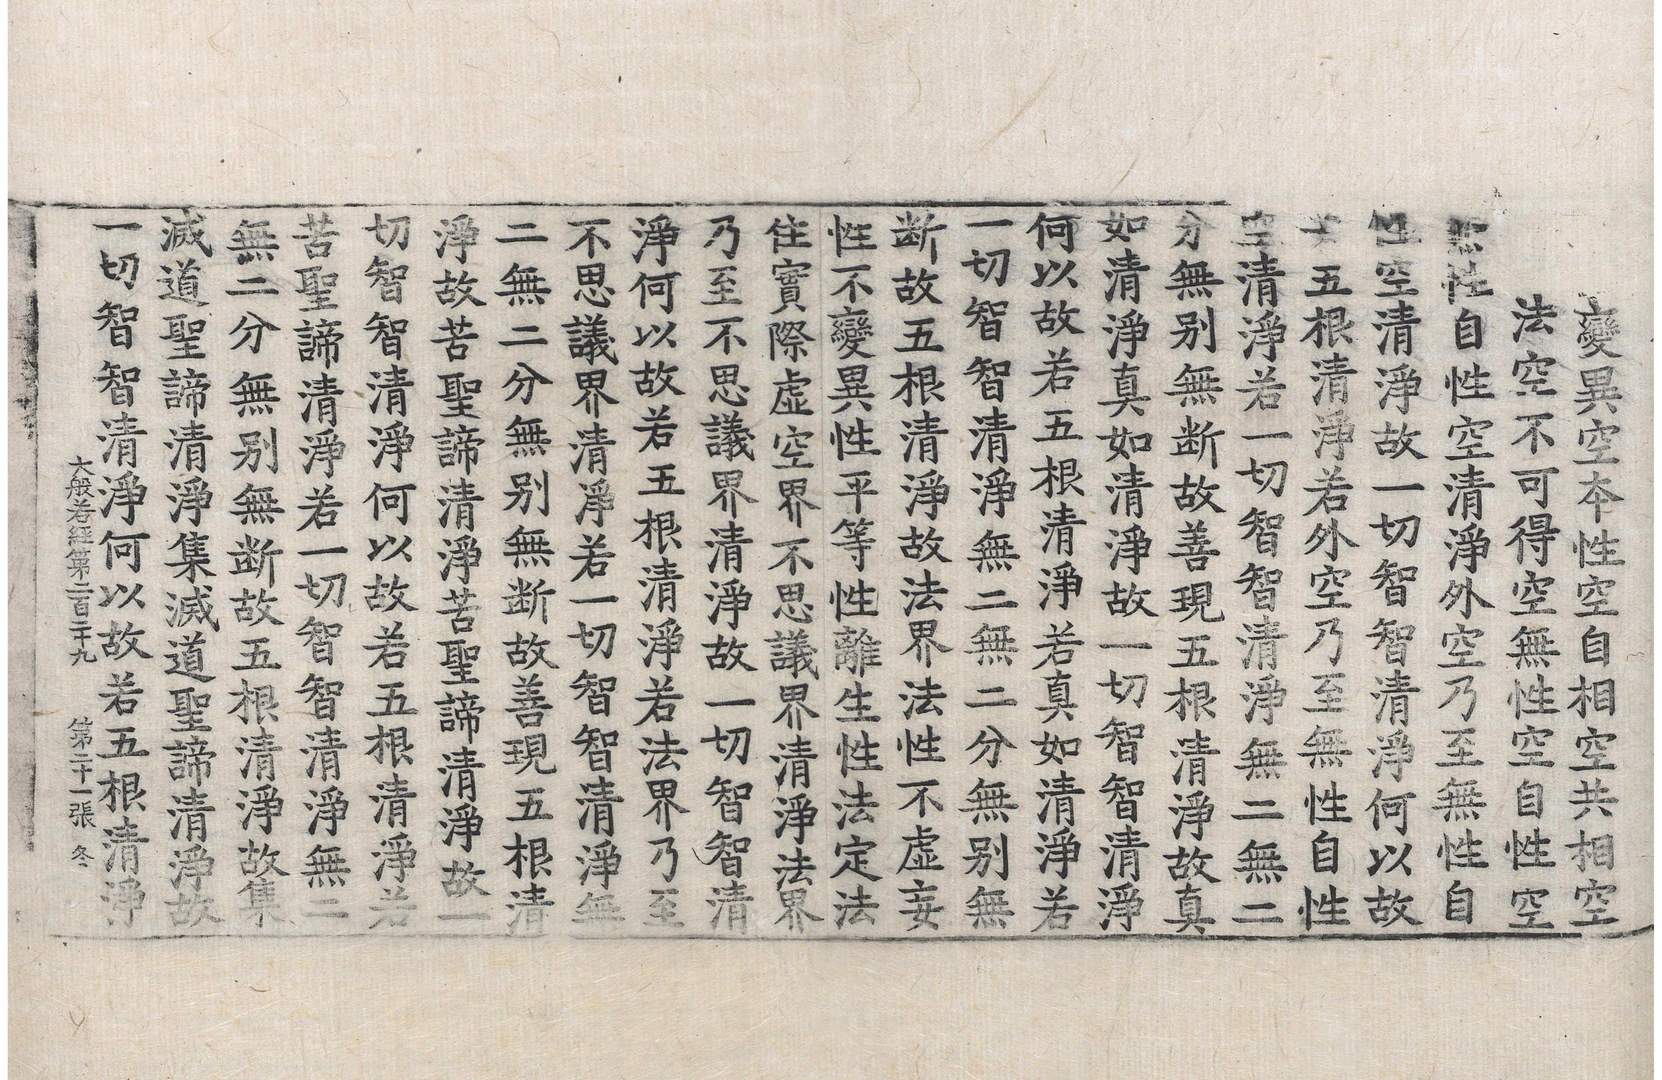 變異空本性空自相空共相空
法空不可得空無性空自性空
無性自性空清淨外空乃至無性自
性空清淨故一切智智清淨何以故
若五根清淨若外空乃至無性自性
空清淨若一切智智清淨無二無二
分無别無断故善現五根清淨故真
如清淨真如清淨故一切智智清淨
何以故若五根清淨若真如清淨若
一切智智清淨無二無二分無别無
断故五根清淨故法界法性不虛妄
性不變異性平等性離生性法定法
住實際虛空界不思議界清淨法界
乃至不思議界清淨故一切智智清
淨何以故若五根清淨若法界乃至
不思議界清淨若一切智智清淨無
二無二分無别無断故善現五根清
淨故苦聖諦清淨苦聖諦清淨故一
切智智清淨何以故若五根清淨若
苦聖諦清淨若一切智智清淨無二
無二分無别無断故五根清淨故集
滅道聖諦清淨集滅道聖諦清淨故
一切智智清淨何以故若五根清淨
大般若經第二百二十九 第二十一張 冬